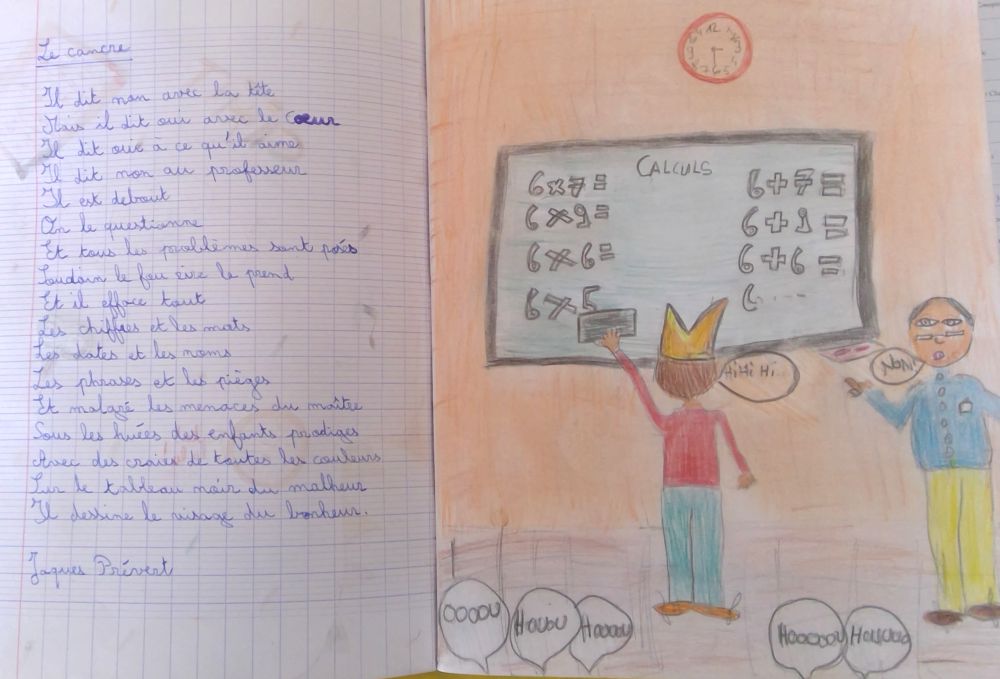 Le cancre
Il dit non avec la tête
Mais il dit oui avec le Coeur
Il dit oui à ce qu'il aime
Il dit non au professeur
Il est debout
On le questionne
Et tous les problèmes sont posés
Soudain le fou rire le prend
Et il efface tout
Les chiffres et les mots
Les dates et les noms
Les phrases et les pièges
Et malgré les menaces du maître
Sous les huées des enfants prodiges
Avec des craies de toutes les couleurs
Sur le tableau noir du malheur
Il dessine le visage du bonheur.
Jaques Prévert
CALCULS
6x7=
6x9=
6x6=
6x5
6+7=
6+9=
6+6=
6....
HiHi Hi..
Non!
OOOOU
Houou
Hooooou
Hoooooou